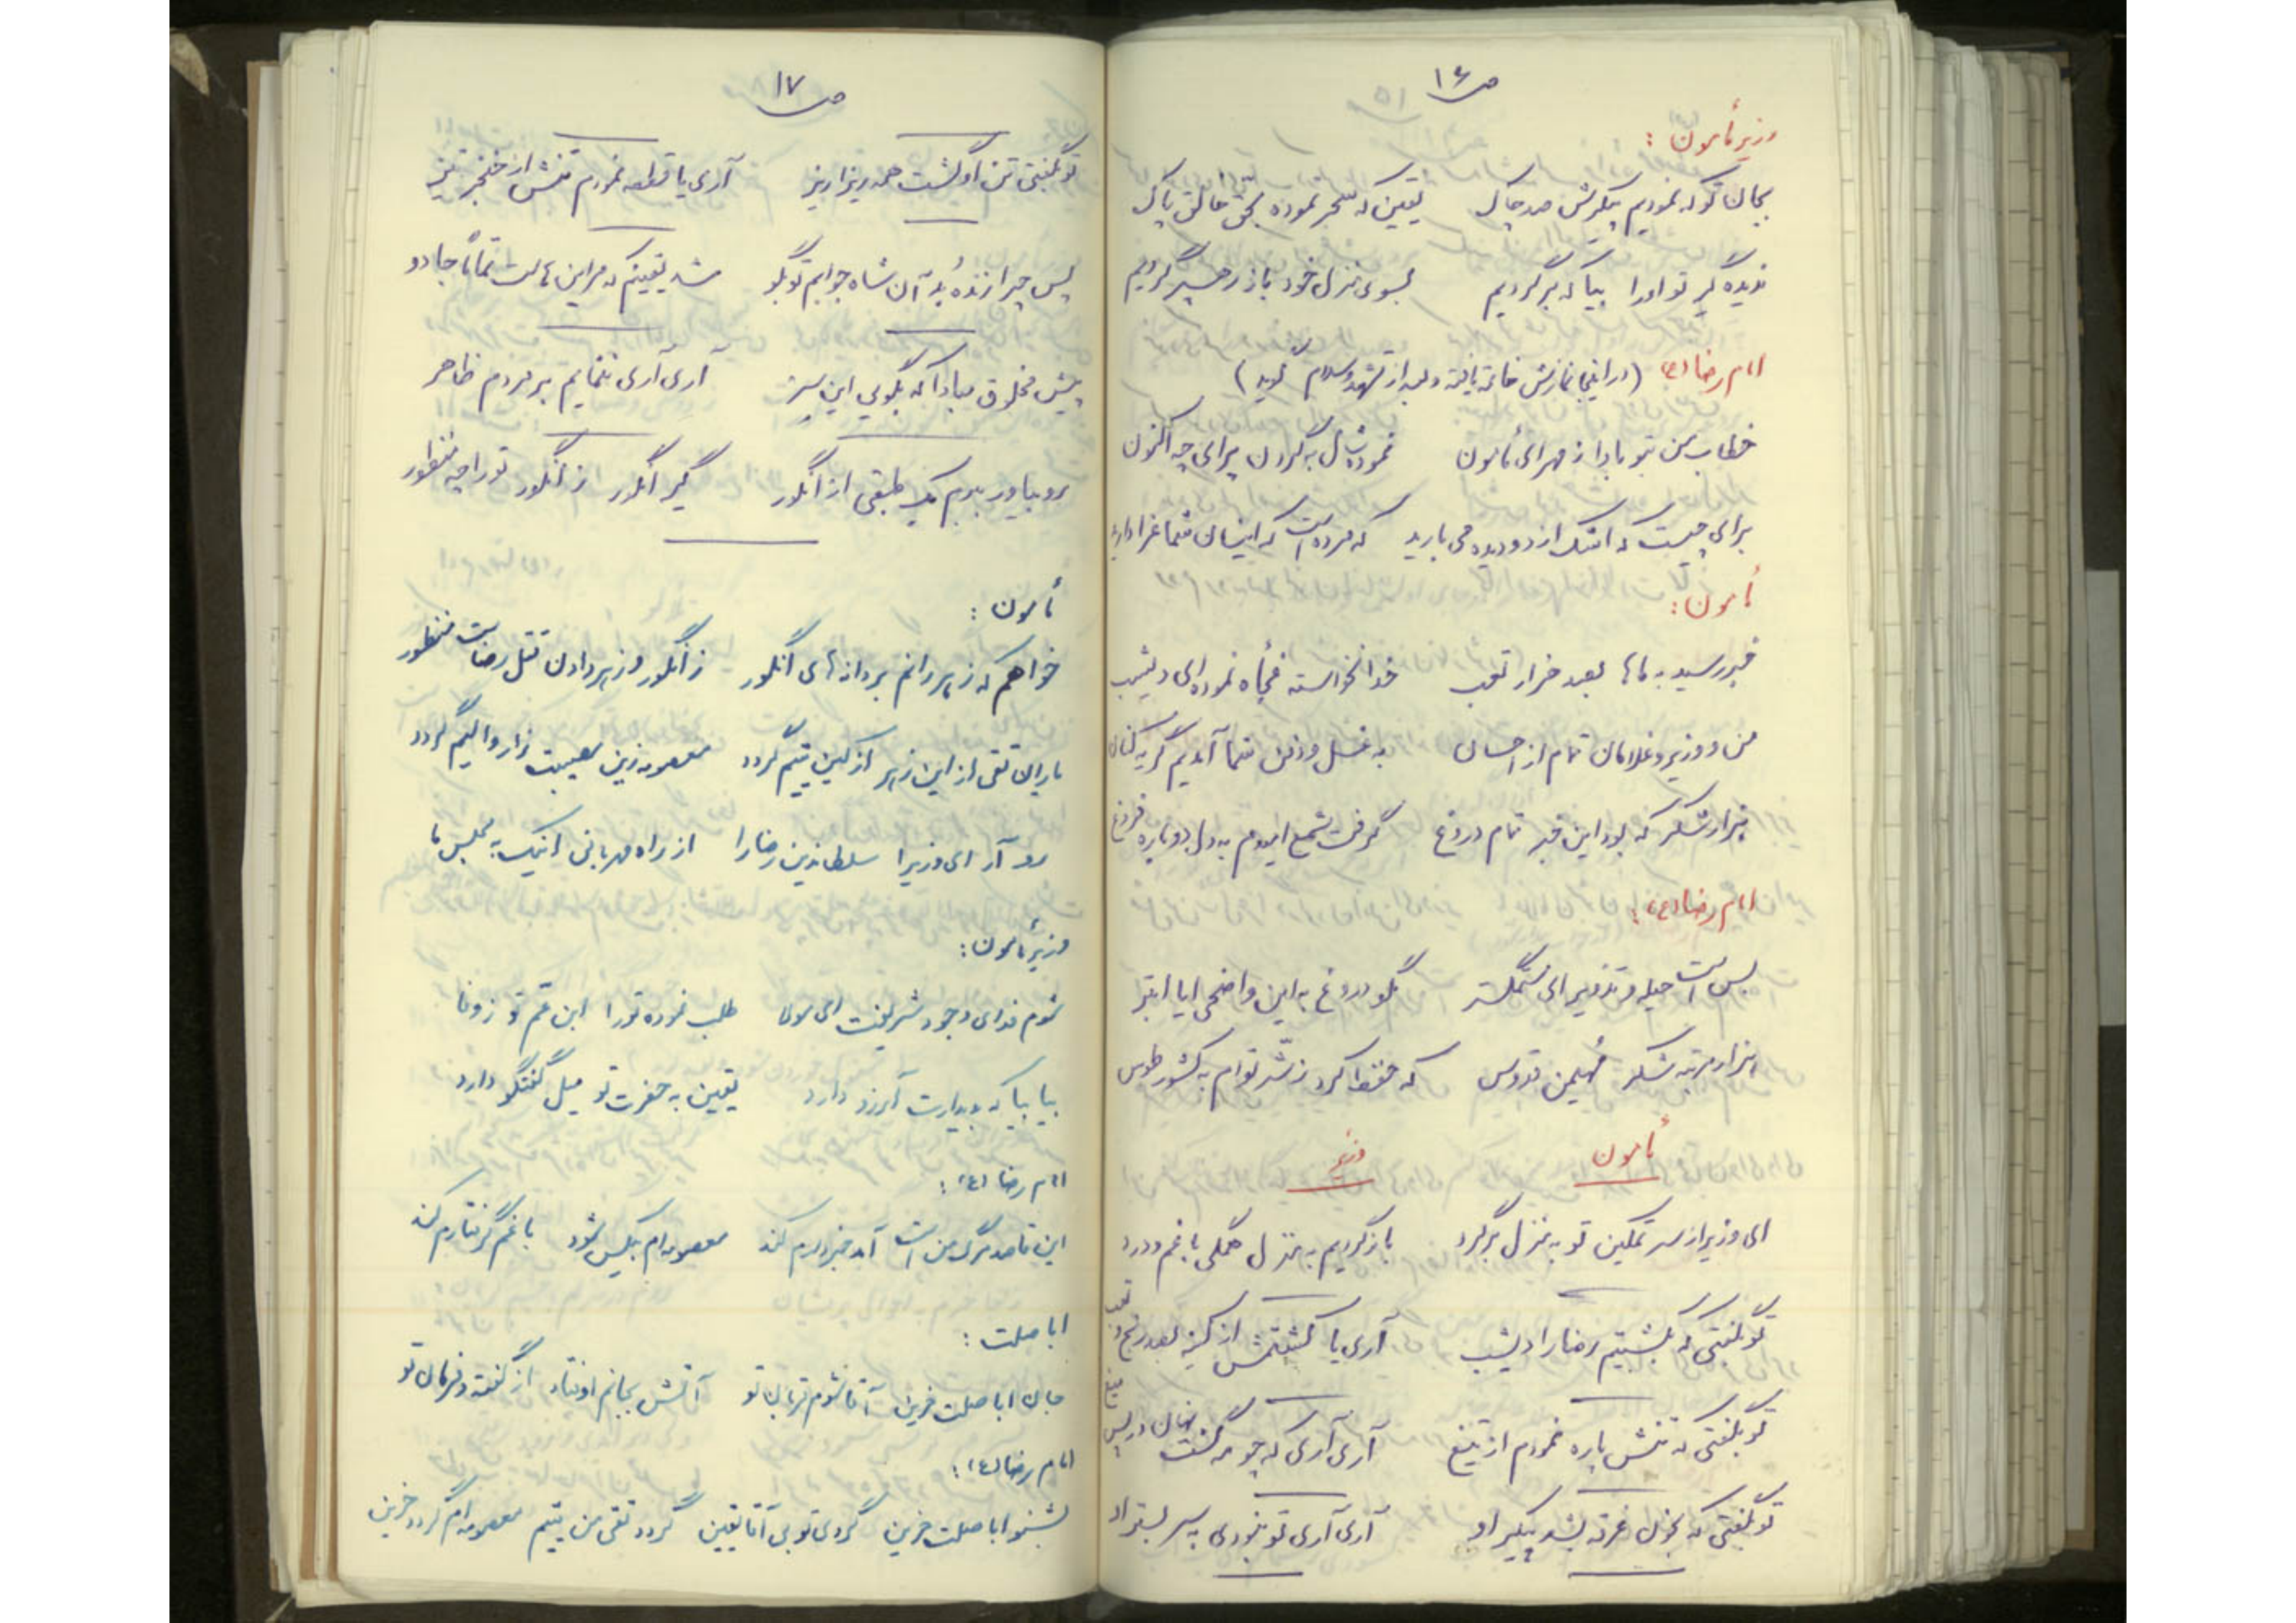 ص۱۶
وزیر مأمون :
بجان تو که نمودیم پیکرش صد چاک یقین که سحر نموده بحق خالق پاک
ندیده گیر تو او را بیا که برگردیم بسوی منزل خود باز رهسپر گردیم
امام رضا (ع) (در اینجا نمازش خاتمه یافته و بعد از تشهد و سلام گوید)
خطاب من بتو بادا ز مهر ای مأمون نموده شال به گردن برای چه اکنون
برای چیست که اشک از دو دیده می بارید که مرده است که اینسان شما عزادارید
مأمون :
خبر رسید به ماها بصد هزار تعب خدا نخواسته فجأه نموده ای دیشب
من و وزیر و غلامان تمام از احسان به غسل و دفن شما آمدیم گریه کنان
هزار شکر که بود این خبر تمام دروغ گرفت شمع امیدم به دل دوباره فروغ
امام رضا (ع) :
بس است حیله و تزویر ای ستمگستر مگو دروغ به این واضحی ایا ابتر
هزار مرتبه شکر مهیمن قدوس که حفظ کرد ز شّر توام به کشور طوس
مأمون وزیر
ای وزیر از سر تمکین تو به منزل برگرد باز گردیم به منزل همگی با غم و درد
تو بگفتی که بکشتیم رضا را دیشب آری یا کشتمش از کینه بصد رنج و تعب
تو بگفتی که تنش پاره نمودم از تیغ آری آری که چو مه گشت نهان در پس میغ
تو بگفتی که بخون غرقه بشد پیکر او آری آری تو نبودی به سر بستر او
ص۱۷
تو بگفتی تن او گشت همه ریزا ریز آری یا قطعه نمودم تنش از خنجر تیز
پس چرا زنده بُد آن شاه جوابم تو بگو شد یقینم که مر این هاست تماماً جادو
پیش مخلوق مبادا که بگویی این سر آری آری ننمایم بر مردم ظاهر
برو بیاور ببرم یک طبقی از انگور گیر انگور ز انگور تو را چه منظور
مأمون :
خواهم که زهر رانم بر دانه های انگور ز انگور و زهر دادن قتل رضاست منظور
تقی از این زهر از کین یتیم گردد معصومه زین مصیبت زار و الیم گردد
رو آر ای وزیرا سلطان دین رضا را از راه مهربانی اینک به مجلس ما
وزیر مأمون :
شوم فدای وجود شریفت ای مولا طلب نموده تو را ابن عّم تو ز وفا
بیا بیا که بدیدارت آرزو دارد یقین به حضرت تو میل گفتگو دارد
امام رضا (ع) :
این قاصد مرگ من است آمد خبردارم کند معصومه ام بیکس شود با غم گرفتارم کند
اباصلت :
جان اباصلت حزین آقا شوم قربان تو آتش بجانم اوفتاد از گفته و فرمان تو
امام رضا (ع) :
بشنو اباصلت حزین گردی تو بی آقا یقین گردد تقی من یتیم معصومه ام گردد حزین